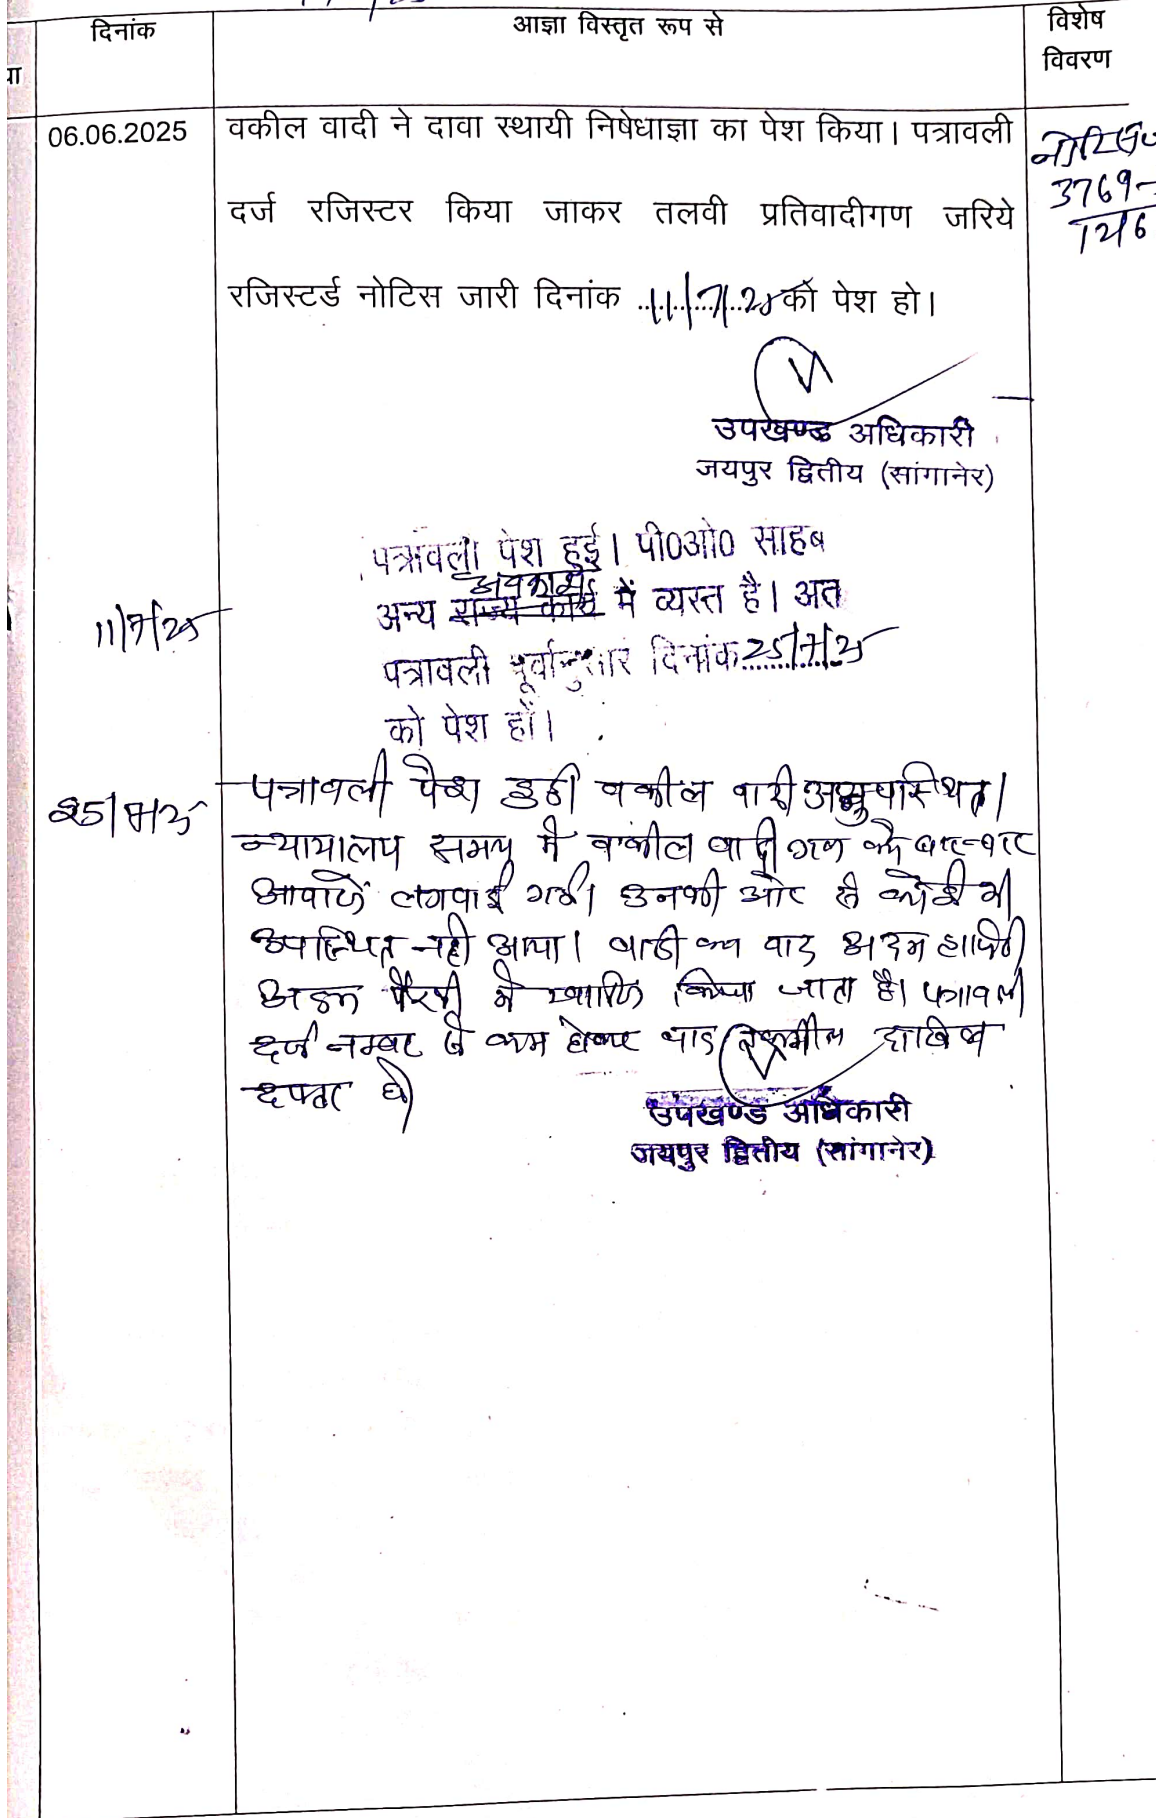 दिनांक
आज्ञा विस्तृत रूप से
विशेष
विवरण
06.06.2025
वकील वादी ने दावा स्थायी निषेधाज्ञा का पेश किया। पत्रावली
दर्ज रजिस्टर किया जाकर तलवी प्रतिवादीगण जरिये
रजिस्टर्ड नोटिस जारी दिनांक 11/7/25 को पेश हो।
3769-
12/6
उपखण्ड अधिकारी
जयपुर द्वितीय (सांगानेर)
11/7/25
पत्रावली पेश हुई। पी0ओ0 साहब
अवकाश
अन्य राज्य कार्य में व्यस्त है। अत
पत्रावली पूर्वानुसार दिनांक 25/7/25
को पेश हों।
25/7/25
पत्रावली पेश हुई। वकील वादी अनुपस्थित।
न्यायालय समय में वकील वादी गण को बार-बार
आवाजें लगवाई गई। उनकी ओर से कोई भी
उपस्थित नही आया। वादी का वाद अदम हाजिरी
अदम पैरवी में खारिज किया जाता है। पत्रावली
दर्ज नम्बर से कम होकर बाद तकमील दाखिल
दफ्तर हो
उपखण्ड अधिकारी
जयपुर द्वितीय (सांगानेर)